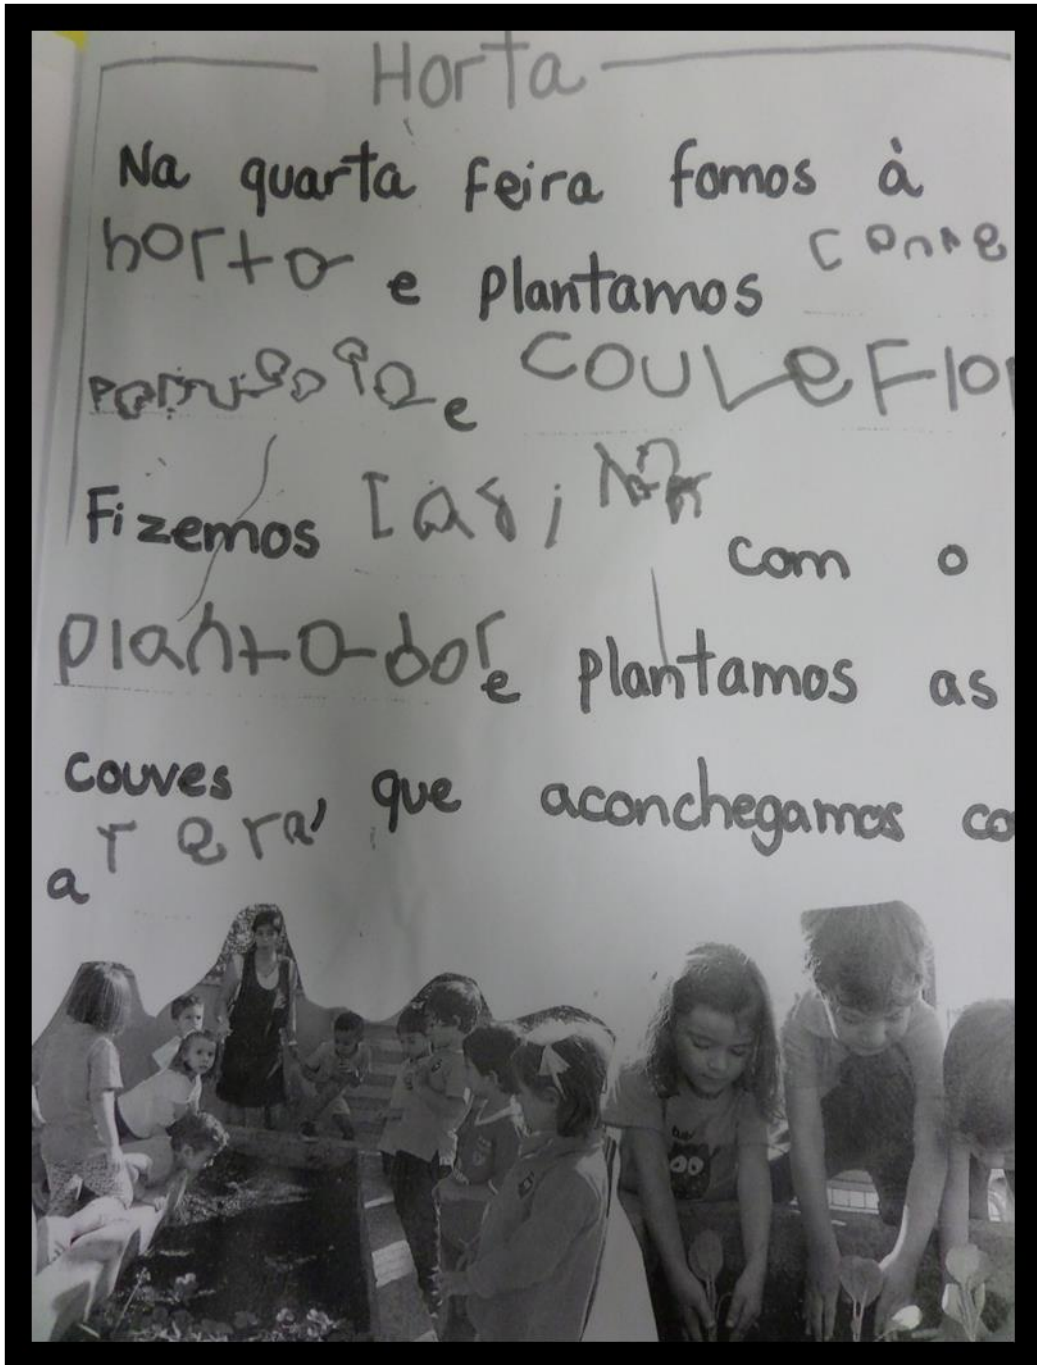 Horta
Na quarta feira fomos à
horta e plantamos
e couve Flor
Fizemos com o
plantador e plantamos as
couves que aconchegamos co
a terra,